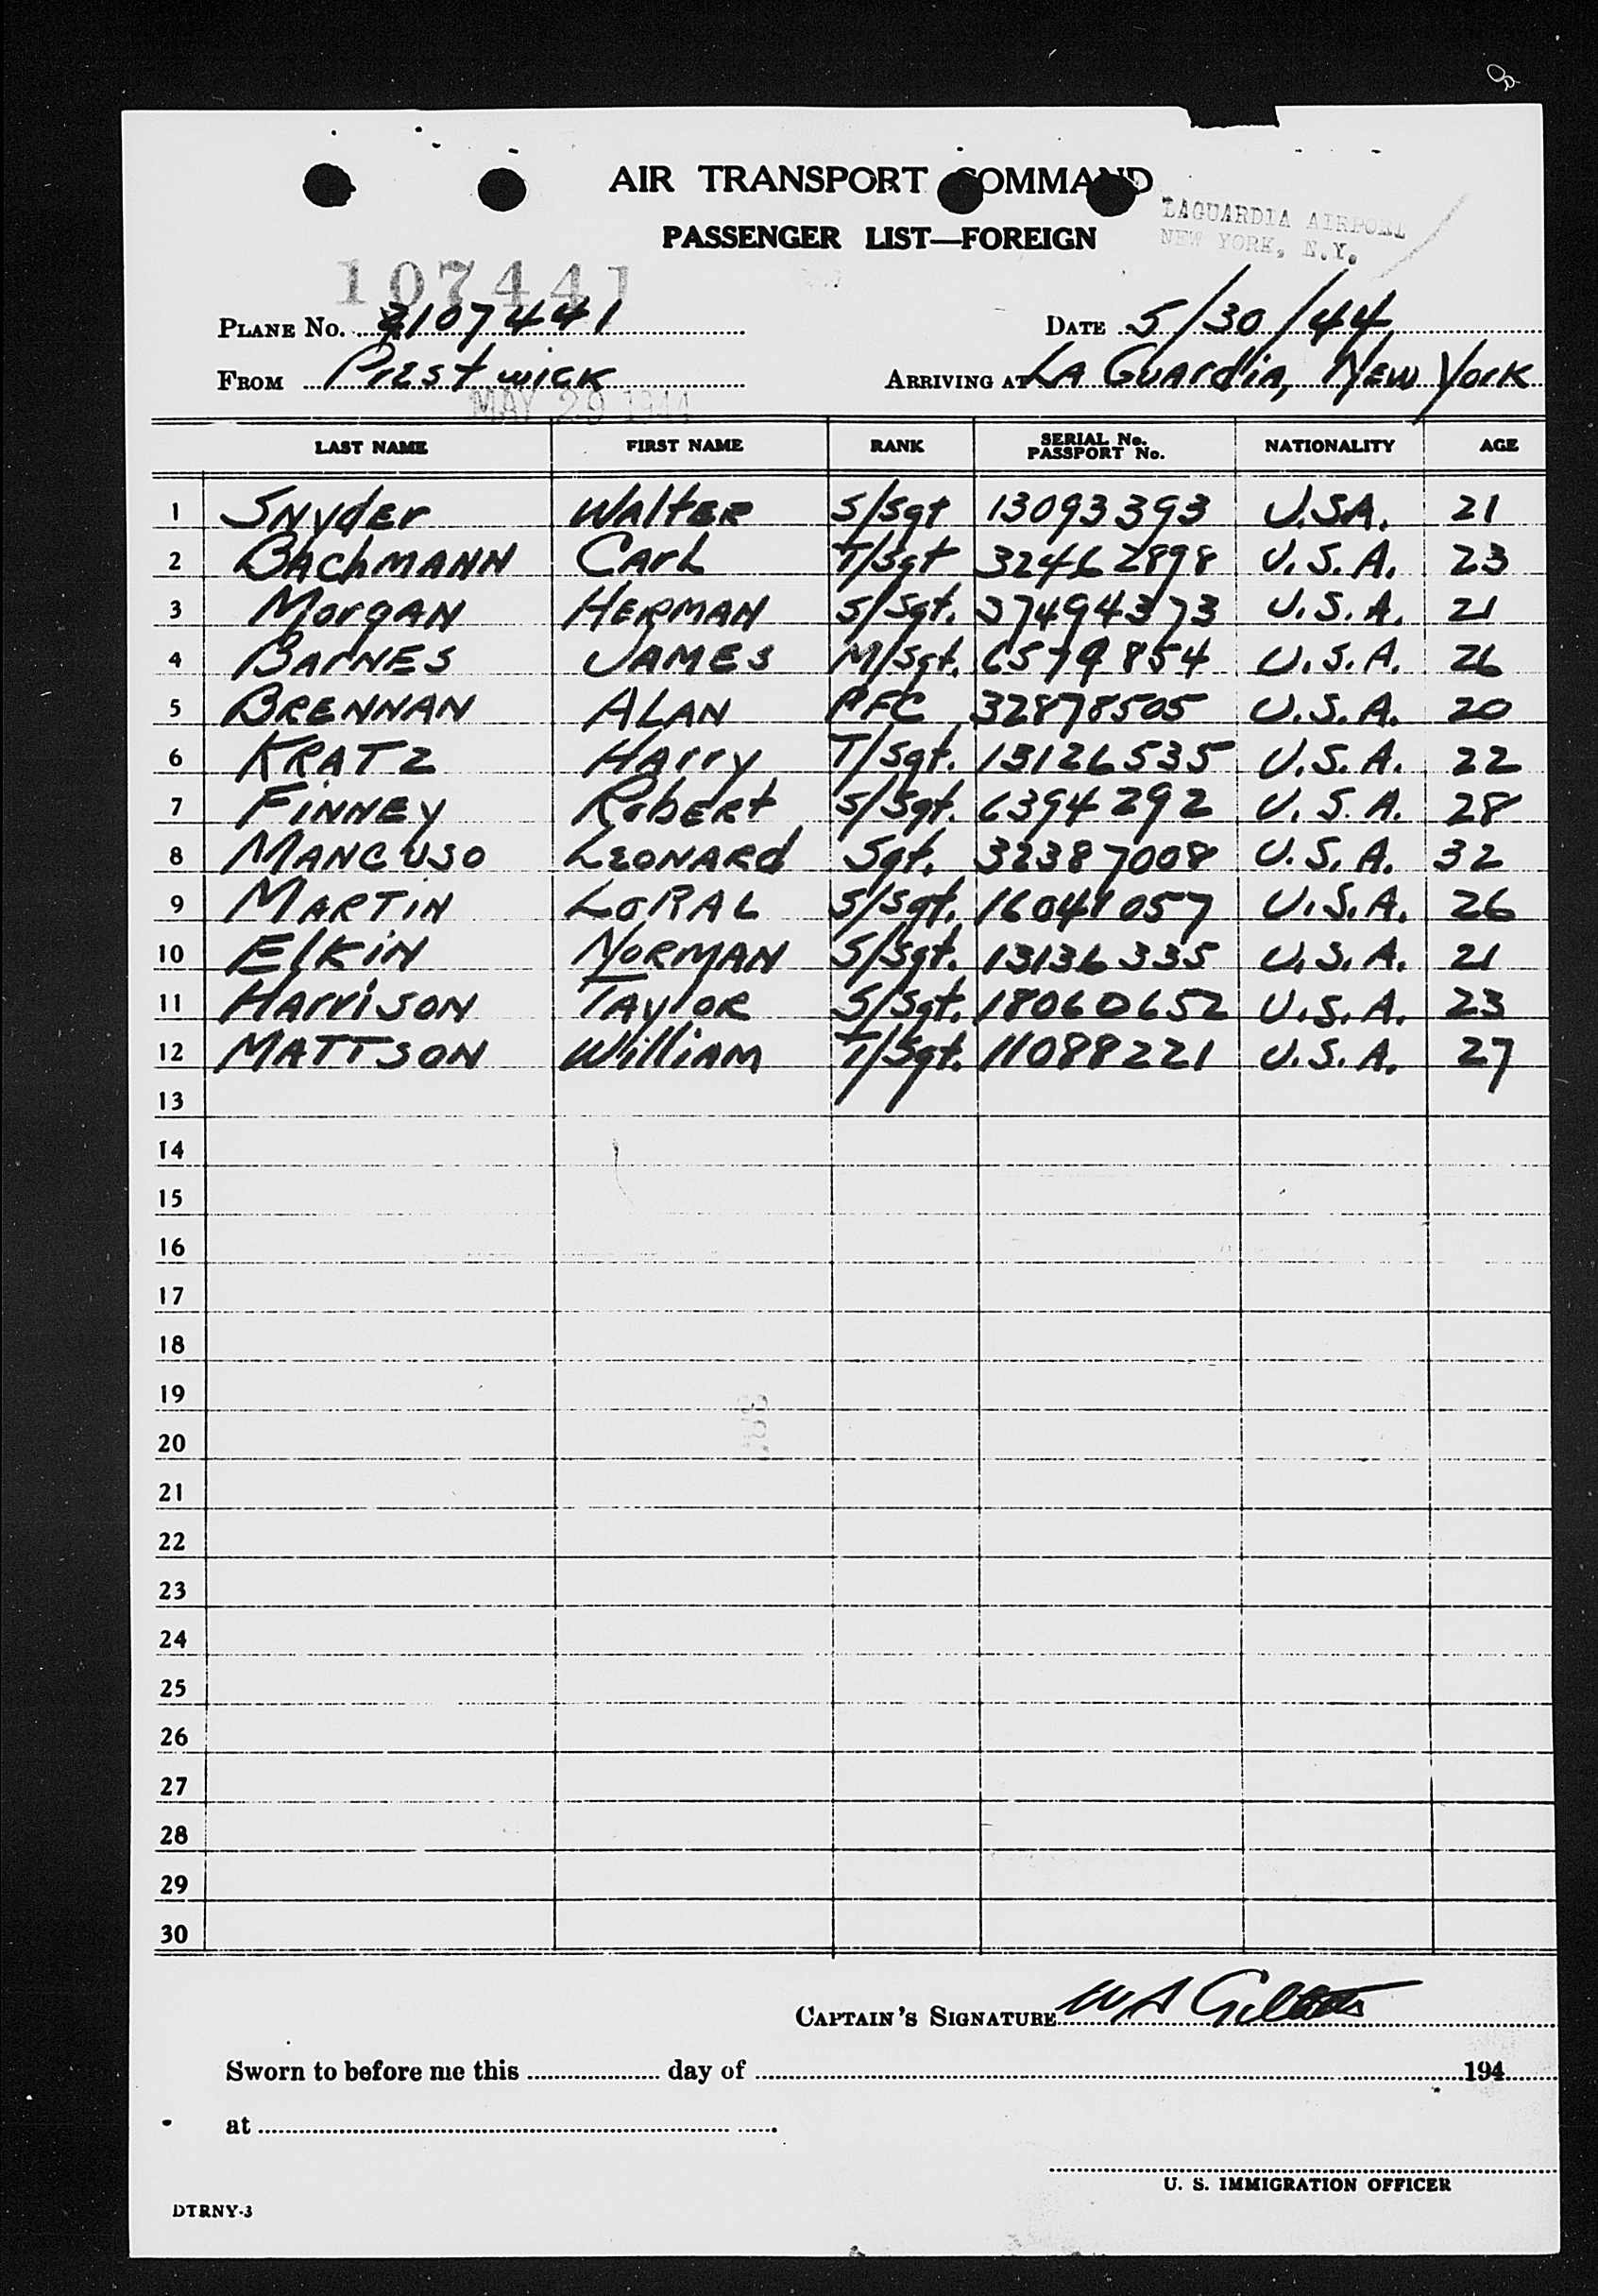 AIR TRANSPORT COMMAND
PASSENGER LIST—FOREIGN
LAGUARDIA AIRPORT
NEW YORK, N.Y.
107441
PLANE No. 2107441 DATE 5/30/44
FROM Prestwick ARRIVING AT LA GUArdiA, NEW York
MAY 29 1944
LAST NAME FIRST NAME RANK SERIAL No. PASSPORT No. NATIONALITY AGE
1 SNyder WAlTER S/Sgt 13093393 U.S.A. 21
2 BAChMANN CArL T/Sgt 32462898 U.S.A. 23
3 MorgAN HERMAN S/Sgt. 37494373 U.S.A. 21
4 BArNES JAMES M/Sgt. 6579854 U.S.A. 26
5 BRENNAN ALAN PFC 32878505 U.S.A. 20
6 KRATZ HArry T/Sgt. 13126535 U.S.A. 22
7 FiNNEy RobERt S/Sgt. 6394292 U.S.A. 28
8 MANCUSO LEONARd Sgt. 32387008 U.S.A. 32
9 MARTiN LoRAL S/Sgt. 16041057 U.S.A. 26
10 ElKiN NORMAN S/Sgt. 13136335 U.S.A. 21
11 HArriSON TAylOR S/Sgt. 18060652 U.S.A. 23
12 MATTSON WilliAM T/Sgt. 11088221 U.S.A. 27
13
14
15
16
17
18
19
20
21
22
23
24
25
26
27
28
29
30
CAPTAIN'S SIGNATURE W A
Sworn to before me this day of 194
at
U. S. IMMIGRATION OFFICER
DTRNY-3